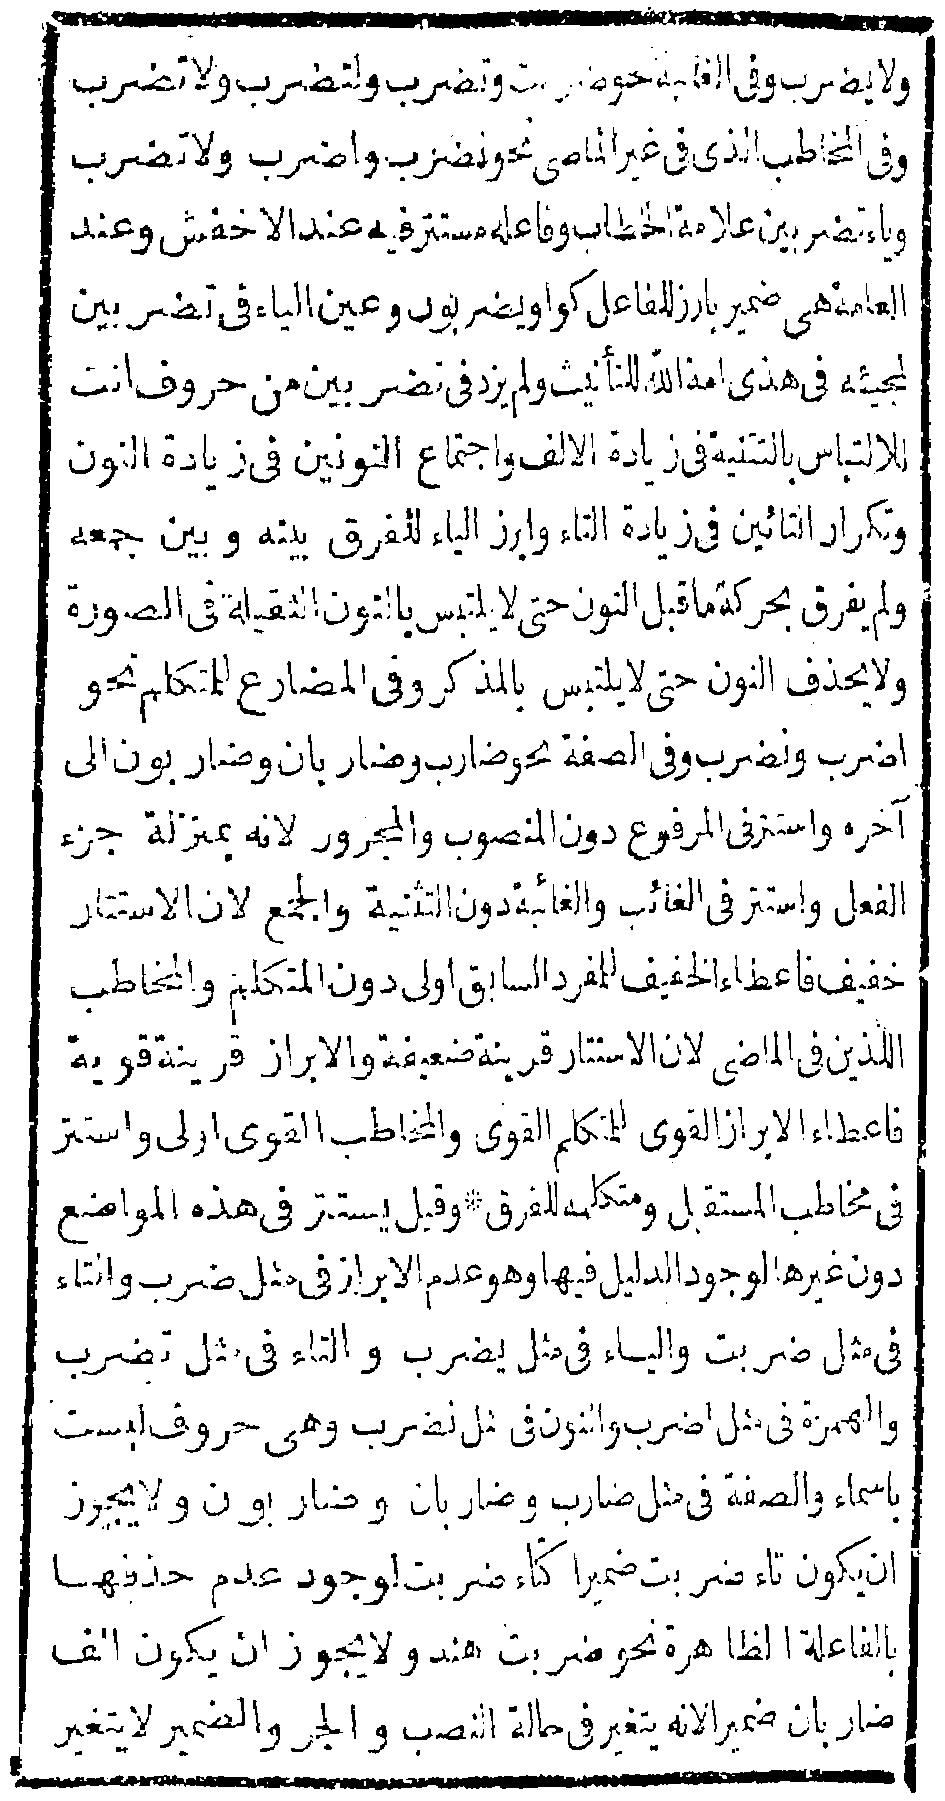 ولا يضرب وفى الغائبة نحو ضربت وتضرب ولتضرب ولا تضرب
وفى المخاطب الذى فى غير الماضى نحو تضرب واضرب ولا تضرب
وياء تضربين علامة الخطاب وفاعله مستتر فيه عند الاخفش وعند
العامة هى ضمير بارز للفاعل كواو يضربون وعين الياء فى تضربين
لمجيئه فى هذى امة الله للتأنيث ولم يزد فى تضربين من حروف انت
للالتباس بالتثنية فى زيادة الالف واجتماع النونين فى زيادة النون
وتكرار التائين فى زيادة التاء وابرز الياء للفرق بينه وبين جمعه
ولم يفرق بحركة ما قبل النون حتى لا يلتبس بالنون الثقيلة فى الصورة
ولا يحذف النون حتى لا يلتبس بالمذكر وفى المضارع للمتكلم نحو
اضرب ونضرب وفى الصفة نحو ضارب وضاربان وضاربون الى
آخره واستتر فى المرفوع دون المنصوب والمجرور لانه بمنزلة جزء
الفعل واستتر فى الغائب والغائبة دون التثنية والجمع لان الاستتار
خفيف فاعطاء الخفيف للمفرد السابق اولى دون المتكلم والمخاطب
اللذين فى الماضى لان الاستتار قرينة ضعيفة والابراز قرينة قوية
فاعطاء الابراز القوى للمتكلم القوى والمخاطب القوى اولى واستتر
فى مخاطب المستقبل ومتكلمه للفرق * وقيل يستتر فى هذه المواضع
دون غيرها لوجود الدليل فيها وهو عدم الابراز فى مثل ضرب والتاء
فى مثل ضربت والياء فى مثل يضرب والتاء فى مثل تضرب
والهمزة فى مثل اضرب والنون فى مثل نضرب وهى حروف ليست
باسماء والصفة فى مثل ضارب وضاربان وضاربون ولا يجوز
ان يكون تاء ضربت ضميرا كتاء ضربت لوجود عدم حذفها
بالفاعلة الظاهرة نحو ضربت هند ولا يجوز ان يكون الف
ضاربان ضميرا لانه يتغير فى حالة النصب والجر والضمير لا يتغير